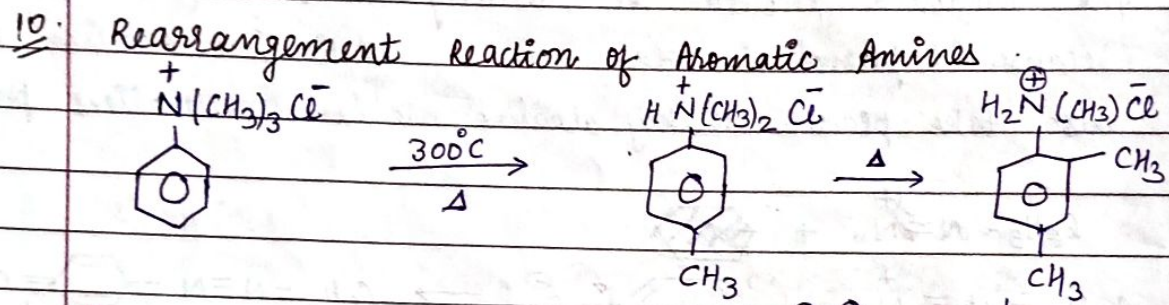 10. Rearrangement Reaction of Aromatic Amines.
+
N(CH3)3 Cl̄
300°C
Δ
+
HN(CH3)2 Cl̄
CH3
Δ
⊕
H2N(CH3) Cl̄
CH3
CH3